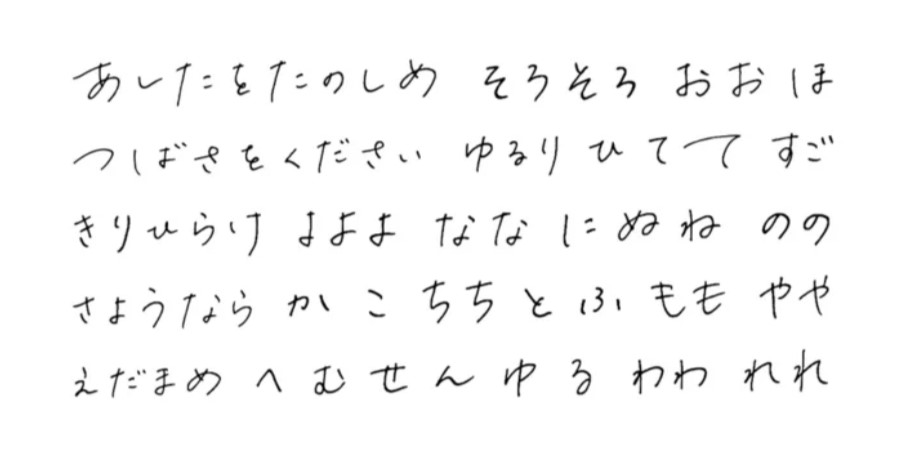 あしたをたのしめ そろそろ おお しほ
つしばさをください ゆるり ひてて すご
きりひらけ よよよ なな にぬね のの
さようなら か こ ちち と ふ もも やや
えだまめ へ む せ ん ゆ る わわ れれ